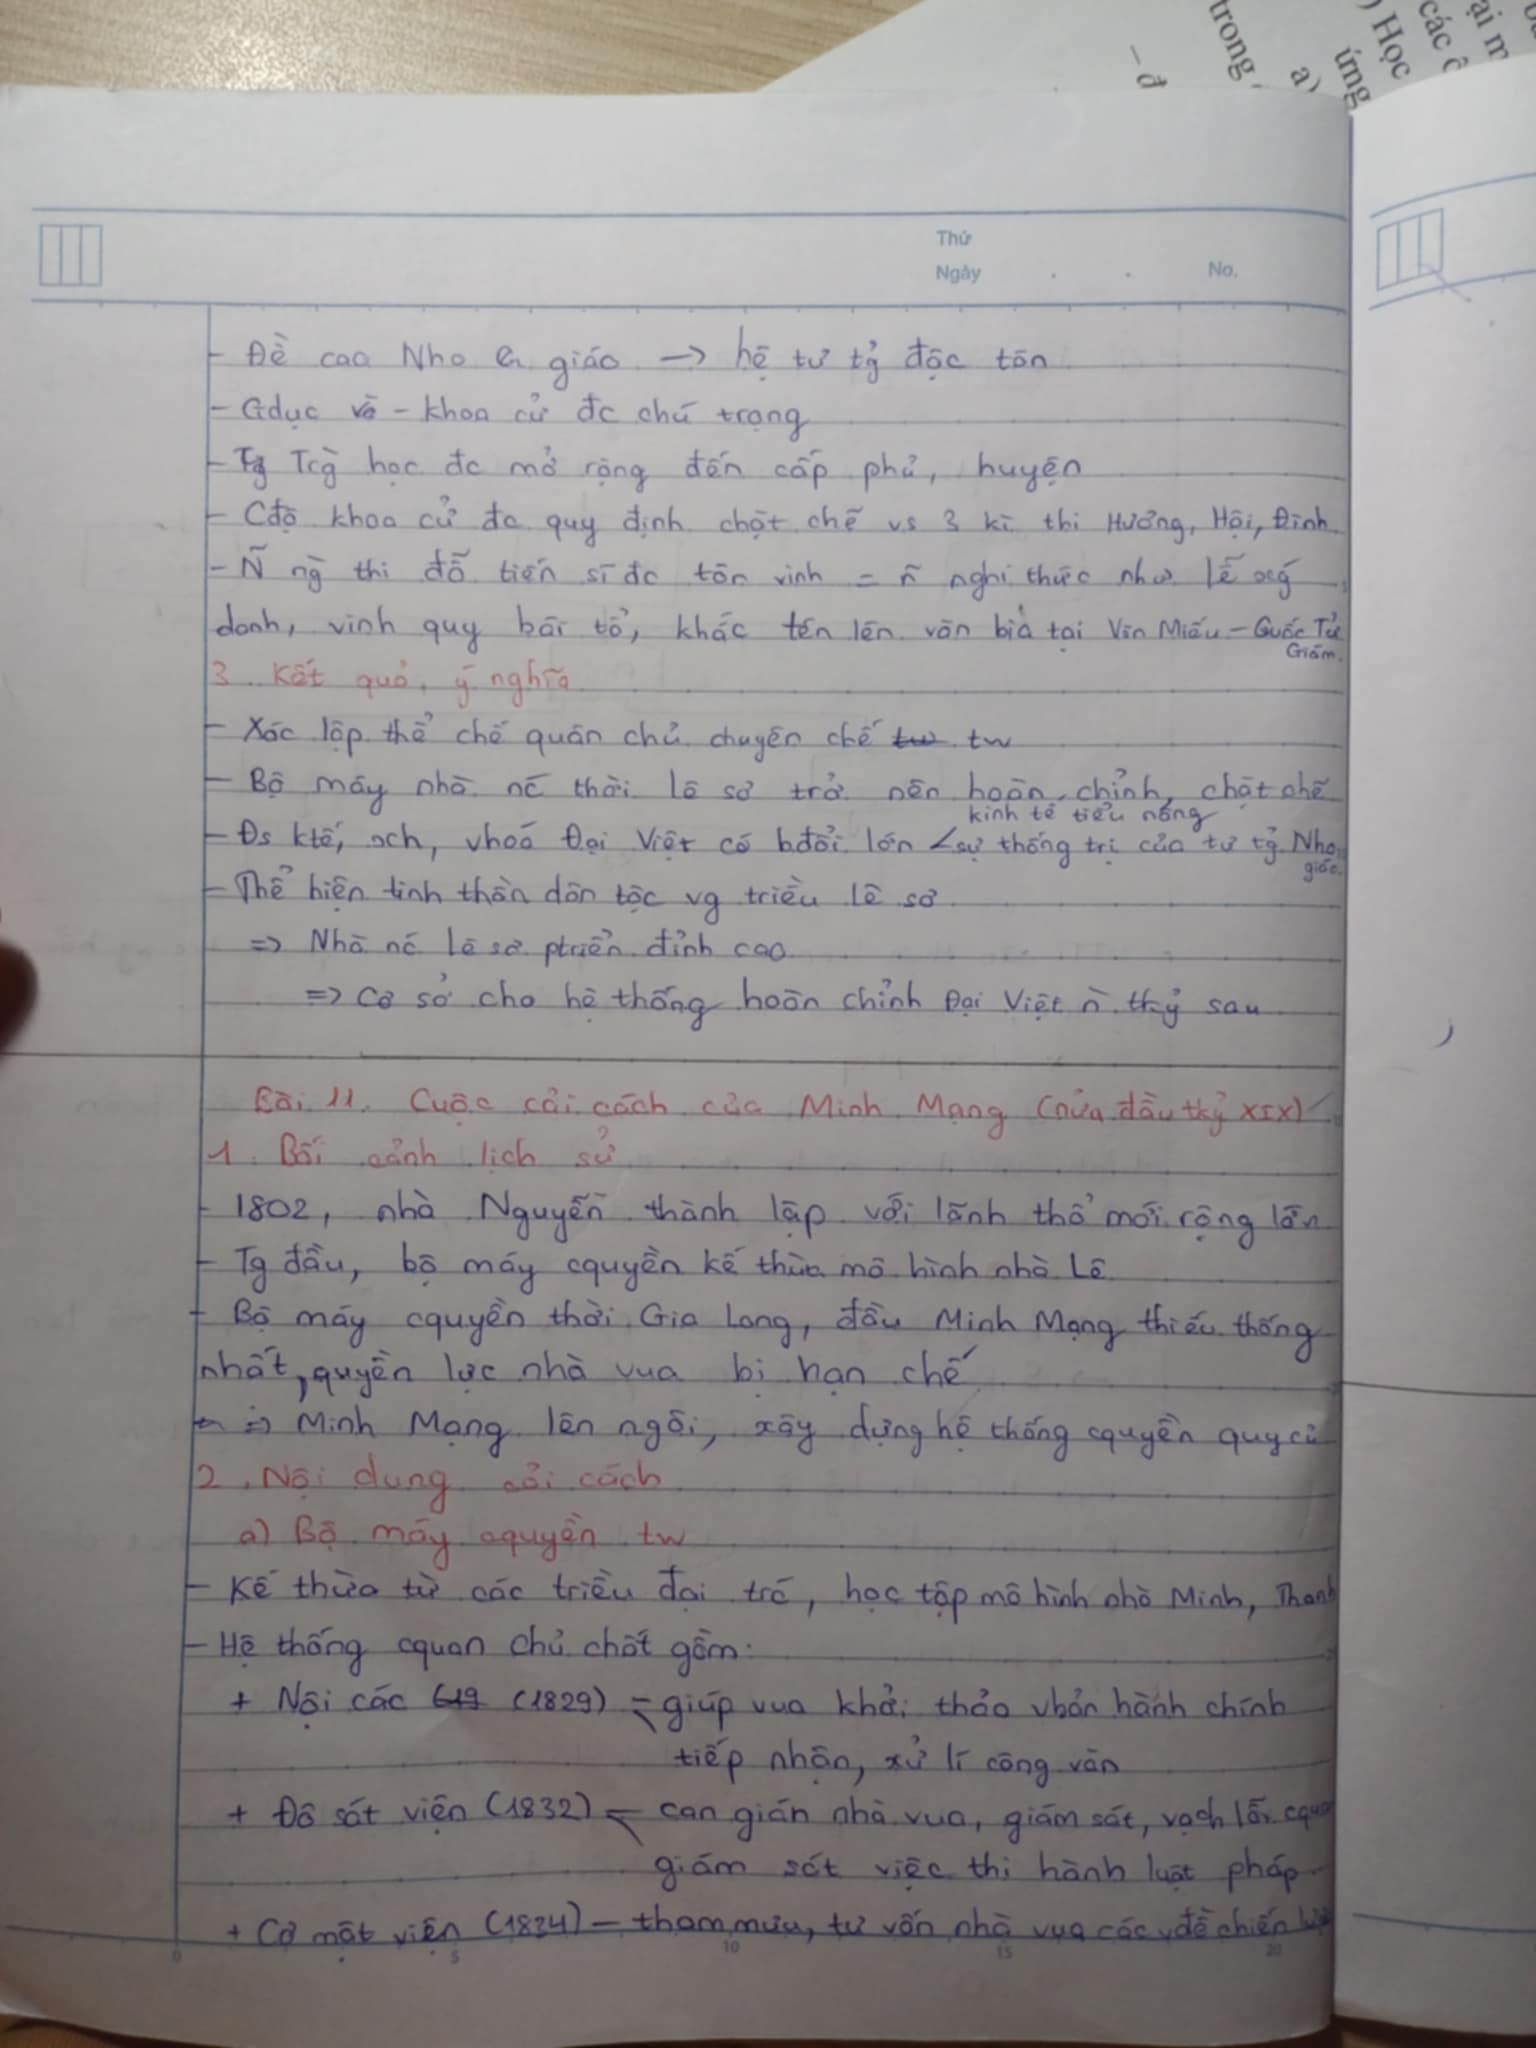 trong
- đ
a)
ứng
) Học
các
ại m
Thứ
Ngày . . No.
- Đề cao Nho giáo -> hệ tư tg̉ độc tôn
- Gdục và - khoa cử đc chú trọng
- Trg̀ học đc mở rộng đến cấp phủ, huyện
- Cđộ khoa cử đc quy định chặt chẽ vs 3 kì thi Hương, Hội, Đình
- Ñ ng̀ thi đỗ tiến sĩ đc tôn vinh = ñ nghi thức như lễ xg
danh, vinh quy bái tổ, khắc tên lên văn bia tại Văn Miếu - Quốc Tử
Giám.
3. Kết quả, ý nghĩa
- Xác lập thể chế quân chủ chuyên chế tw tw
- Bộ máy nhà nć thời Lê sơ trở nên hoàn chỉnh, chặt chẽ
kinh tế tiểu nông
- Đs ktế, xh, vhoá Đại Việt có bđổi lớn < sự thống trị của tư tg̉ Nho
giáo.
- Thể hiện tinh thần dân tộc vg triều Lê sơ
=> Nhà nć Lê sơ ptriển đỉnh cao
=> Cơ sở cho hệ thống hoàn chỉnh Đại Việt ǹ tkỷ sau
Bài 11. Cuộc cải cách của Minh Mạng (nửa đầu tkỷ XIX)
1. Bối cảnh lịch sử
- 1802, nhà Nguyễn thành lập với lãnh thổ mới rộng lớn
- Tg đầu, bộ máy cquyền kế thừa mô hình nhà Lê
- Bộ máy cquyền thời Gia Long, đầu Minh Mạng thiếu thống
nhất, quyền lực nhà vua bị hạn chế
=> Minh Mạng lên ngôi, xây dựng hệ thống cquyền quy củ
2. Nội dung cải cách
a) Bộ máy cquyền tw
- Kế thừa từ các triều đại trć, học tập mô hình nhà Minh, Thanh
- Hệ thống cquan chủ chốt gồm:
+ Nội các (19 (1829) - giúp vua khởi thảo vbản hành chính
tiếp nhận, xử lí công văn
+ Đô sát viện (1832) - can gián nhà vua, giám sát, vạch lỗi cquan
giám sát việc thi hành luật pháp
+ Cơ mật viện (1834) - tham mưu, tư vấn nhà vua các vđề chiến
0 5 10 15 20